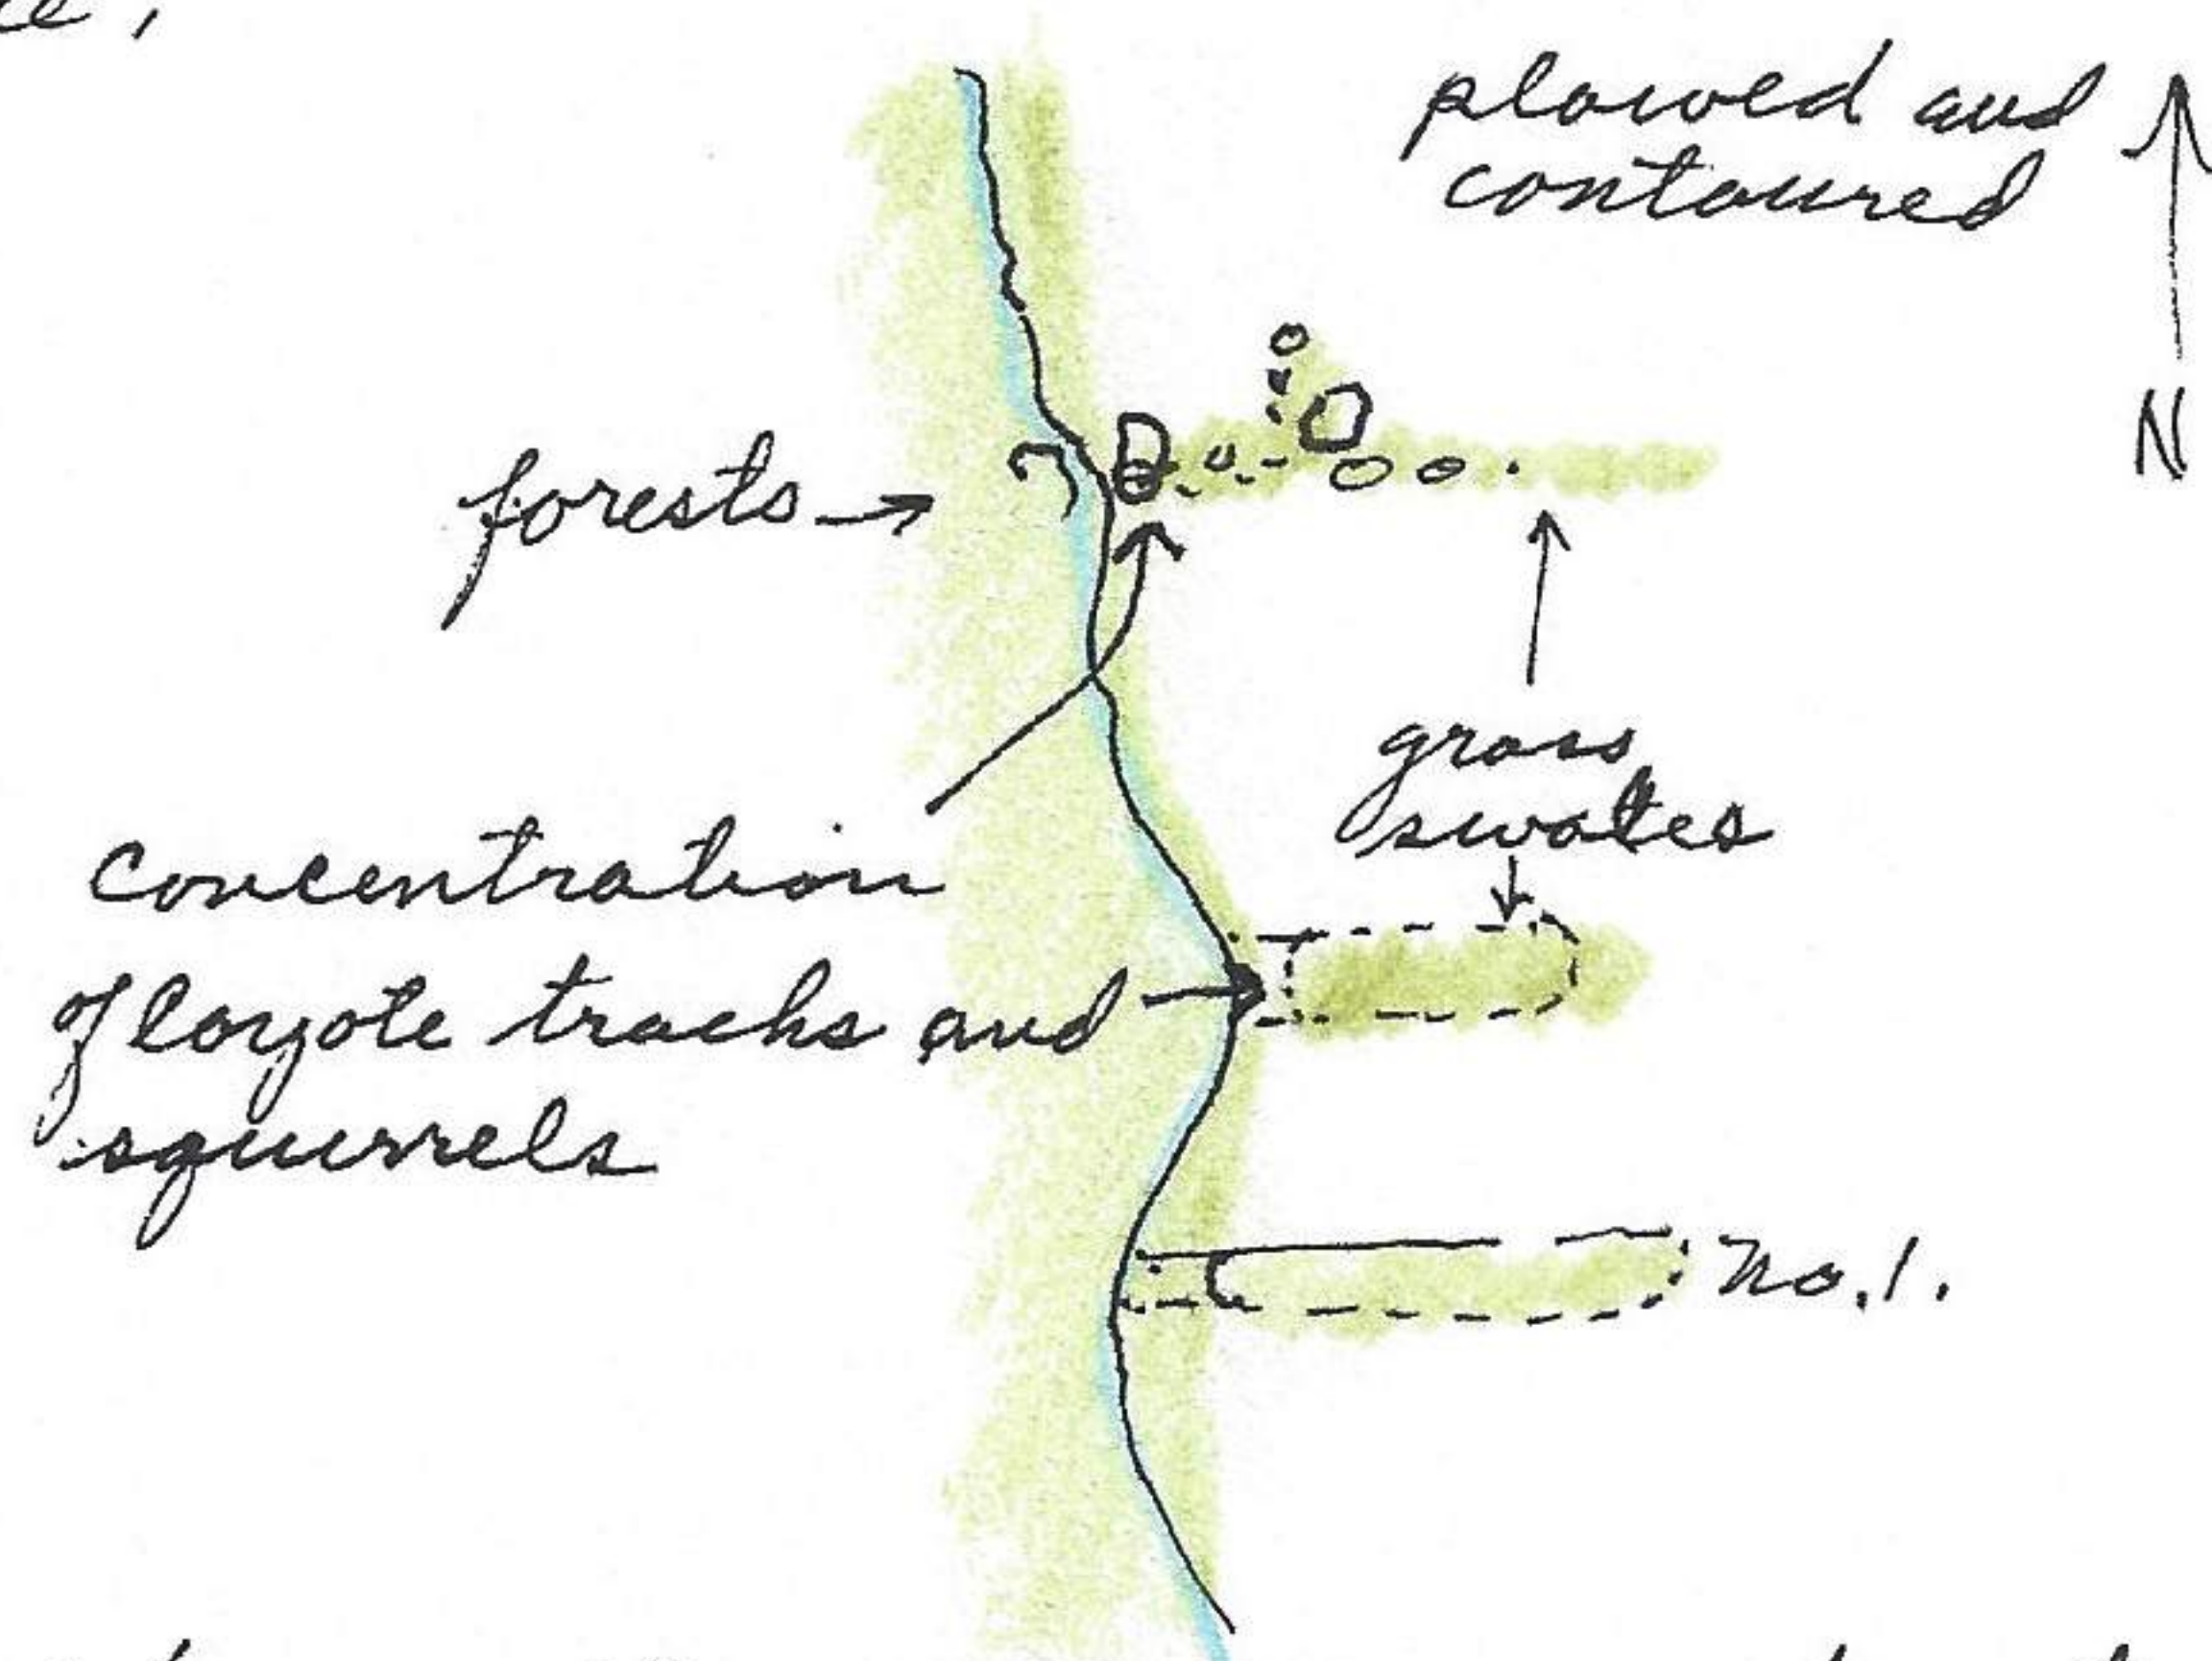 plowed and
contoured
N
forests
grass
swales
concentration
of coyote tracks and
squirrels
No. 1.